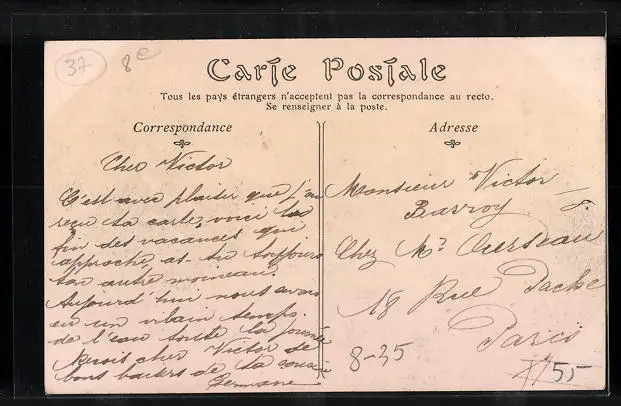 37
8e
Carte Postale
Tous les pays étrangers n'acceptent pas la correspondance au recto.
Se renseigner à la poste.
Correspondance
Adresse
Cher Victor
C'est avec plaisir que j'ai
reçu ta carte, voici la
fin des vacances qui
approche as-tu toujours
ton autre moineau?
Aujourd'hui nous avons
eu un vilain temps.
de l'eau toute la journée
Reçois cher Victor de
bons baisers de ta cousine
Germane
Monsieur Victor
Barroy
Chez Mr Ourseau
18 Rue Pache
Paris
8-35
55